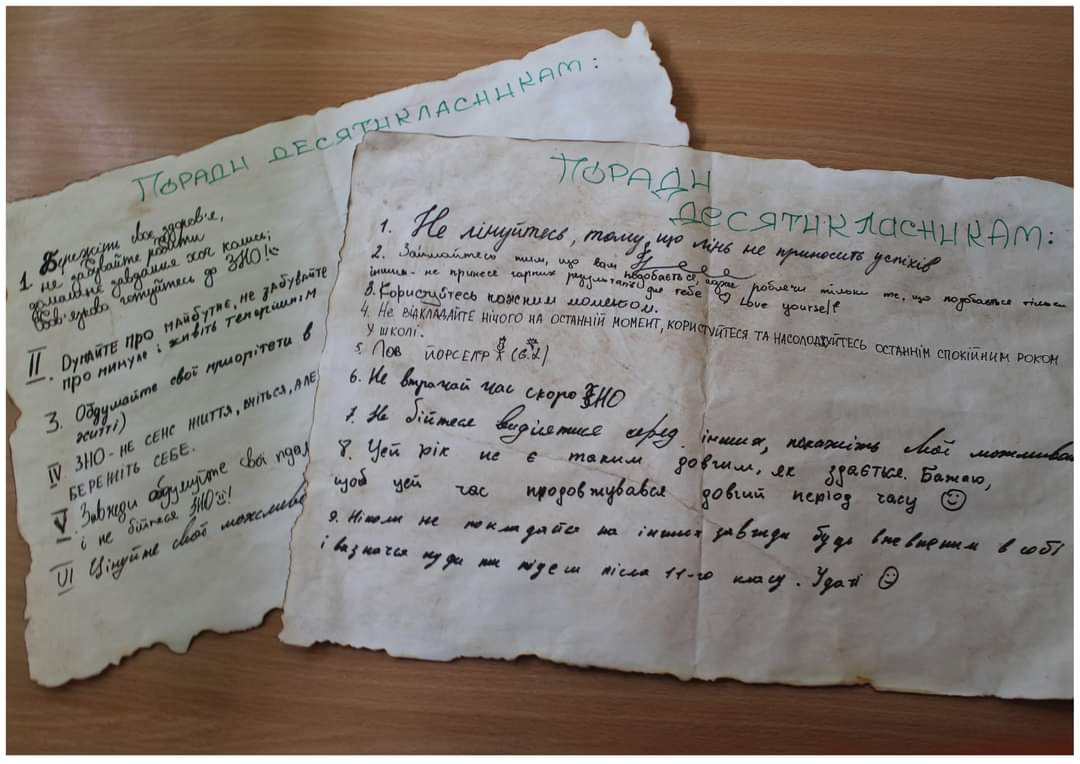 ПОРАДИ ДЕСЯТИКЛАСНИКАМ:
1. Бережіть своє здоров'я,
не забувайте робити
домашнє завдання хоч колись;
обов'язково готуйтесь до ЗНО!
II. ДУМАЙТЕ ПРО МАЙБУТНЄ, НЕ ЗАБУВАЙТЕ
ПРО МИНУЛЕ І ЖИВІТЬ ТЕПЕРІШНІМ
3. Обдумайте свої пріорітети в
житті)
IV ЗНО - НЕ СЕНС ЖИТТЯ, ВЧІТЬСЯ, АЛЕ
БЕРЕЖІТЬ СЕБЕ.
V. Завжди обдумуйте свої
і не бійтеся ЗНО!
VI Цінуйте свої
ПОРАДИ
ДЕСЯТИКЛАСНИКАМ:
1. Не лінуйтесь, тому, що лінь не приносить успіхів
2. Займайтесь тим, що вам подобається, адже роблячи тільки те, що подобається тільки
іншим - не принесе гарних результатів для тебе Love yourself
3. Користуйтесь кожним моментом.
4. НЕ ВІДКЛАДАЙТЕ НІЧОГО НА ОСТАННІЙ МОМЕНТ, КОРИСТУЙТЕСЯ ТА НАСОЛОДЖУЙТЕСЬ ОСТАННІМ СПОКІЙНИМ РОКОМ
У ШКОЛІ.
5. Лов йорселр
6. Не втрачай час скоро ЗНО
7. Не бійтеся виділятися серед інших, покажіть свої
8. Цей рік не є таким довгим, як здається. Бажаю,
щоб цей час продовжувався довгий період часу
9. Ніколи не покладайся на інших завжди будь впевненим в собі
і визначся куди ти підеш після 11-го класу. Удачі